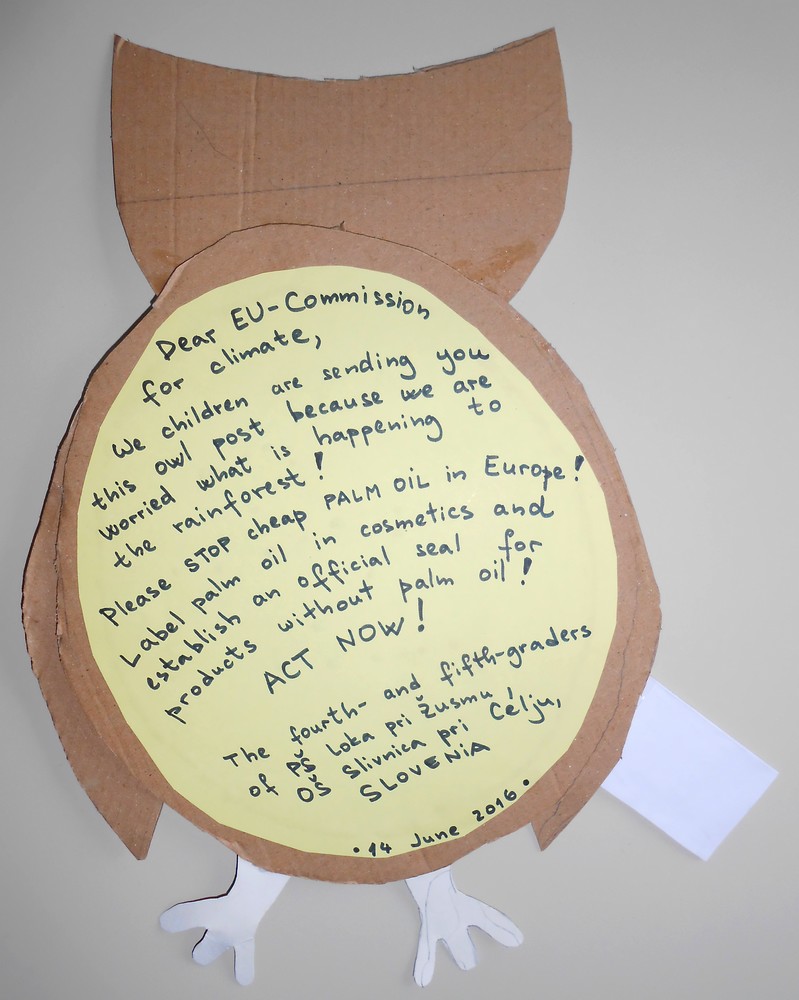 Dear EU-Commission
for climate,
We children are sending you
this owl post because we are
worried what is happening to
the rainforest!
Please STOP cheap PALM OIL in Europe!
Label palm oil in cosmetics and
establish an official seal for
products without palm oil!
ACT NOW!
The fourth- and fifth-graders
of PŠ Loka pri Žusmu,
OŠ Slivnica pri Celju,
SLOVENIA
• 14 June 2016 •